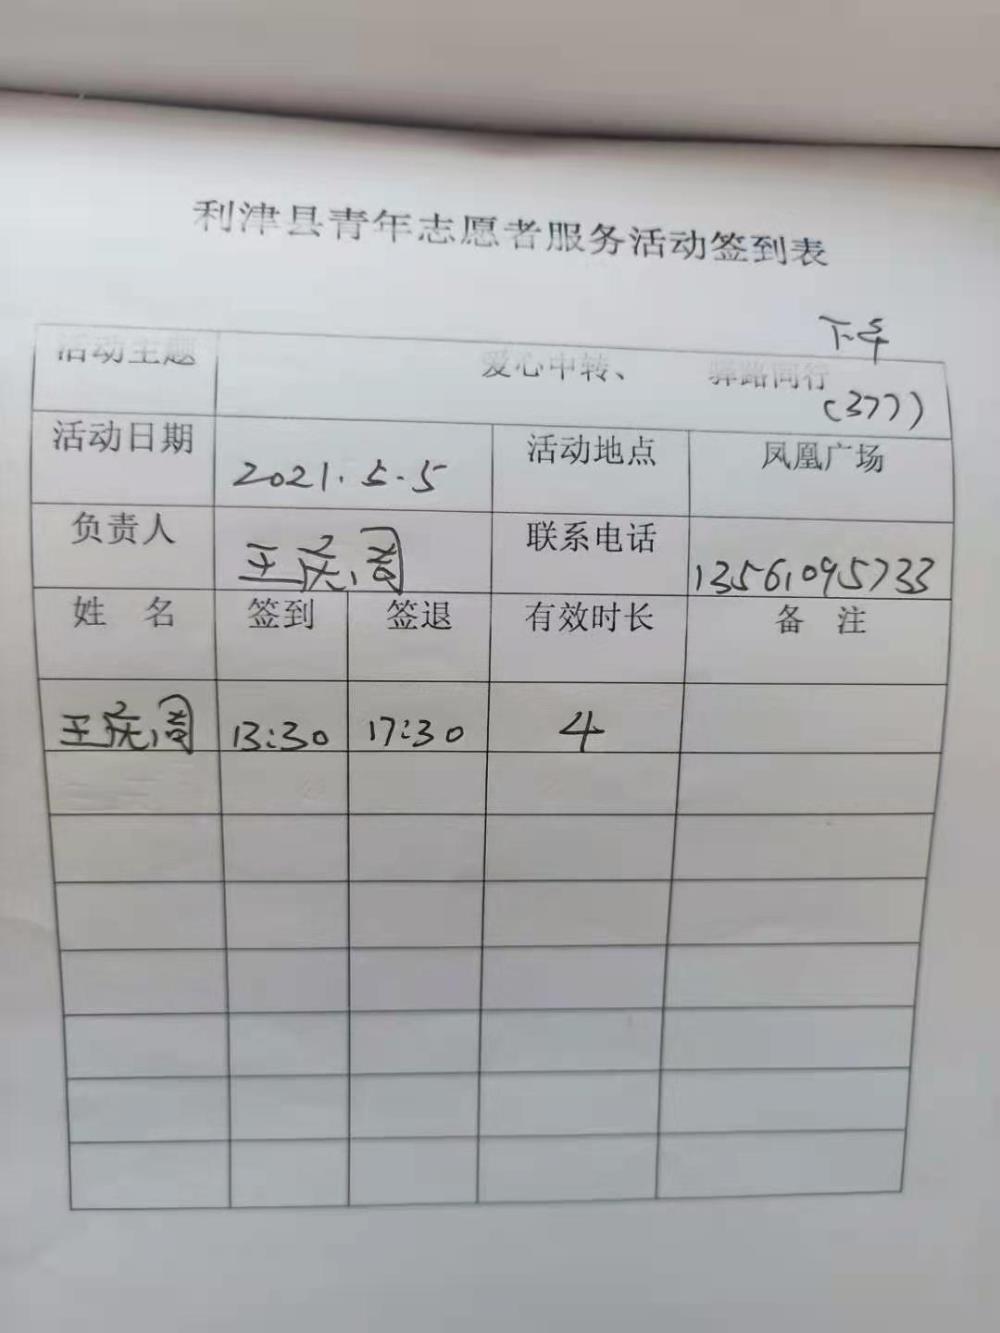 利津县青年志愿者服务活动签到表
下午
活动主题 爱心中转、 驿路同行
(377)
活动日期 2021.5.5 活动地点 凤凰广场
负责人 王庆周 联系电话 13561095733
姓 名 签到 签退 有效时长 备 注
王庆周 13:30 17:30 4